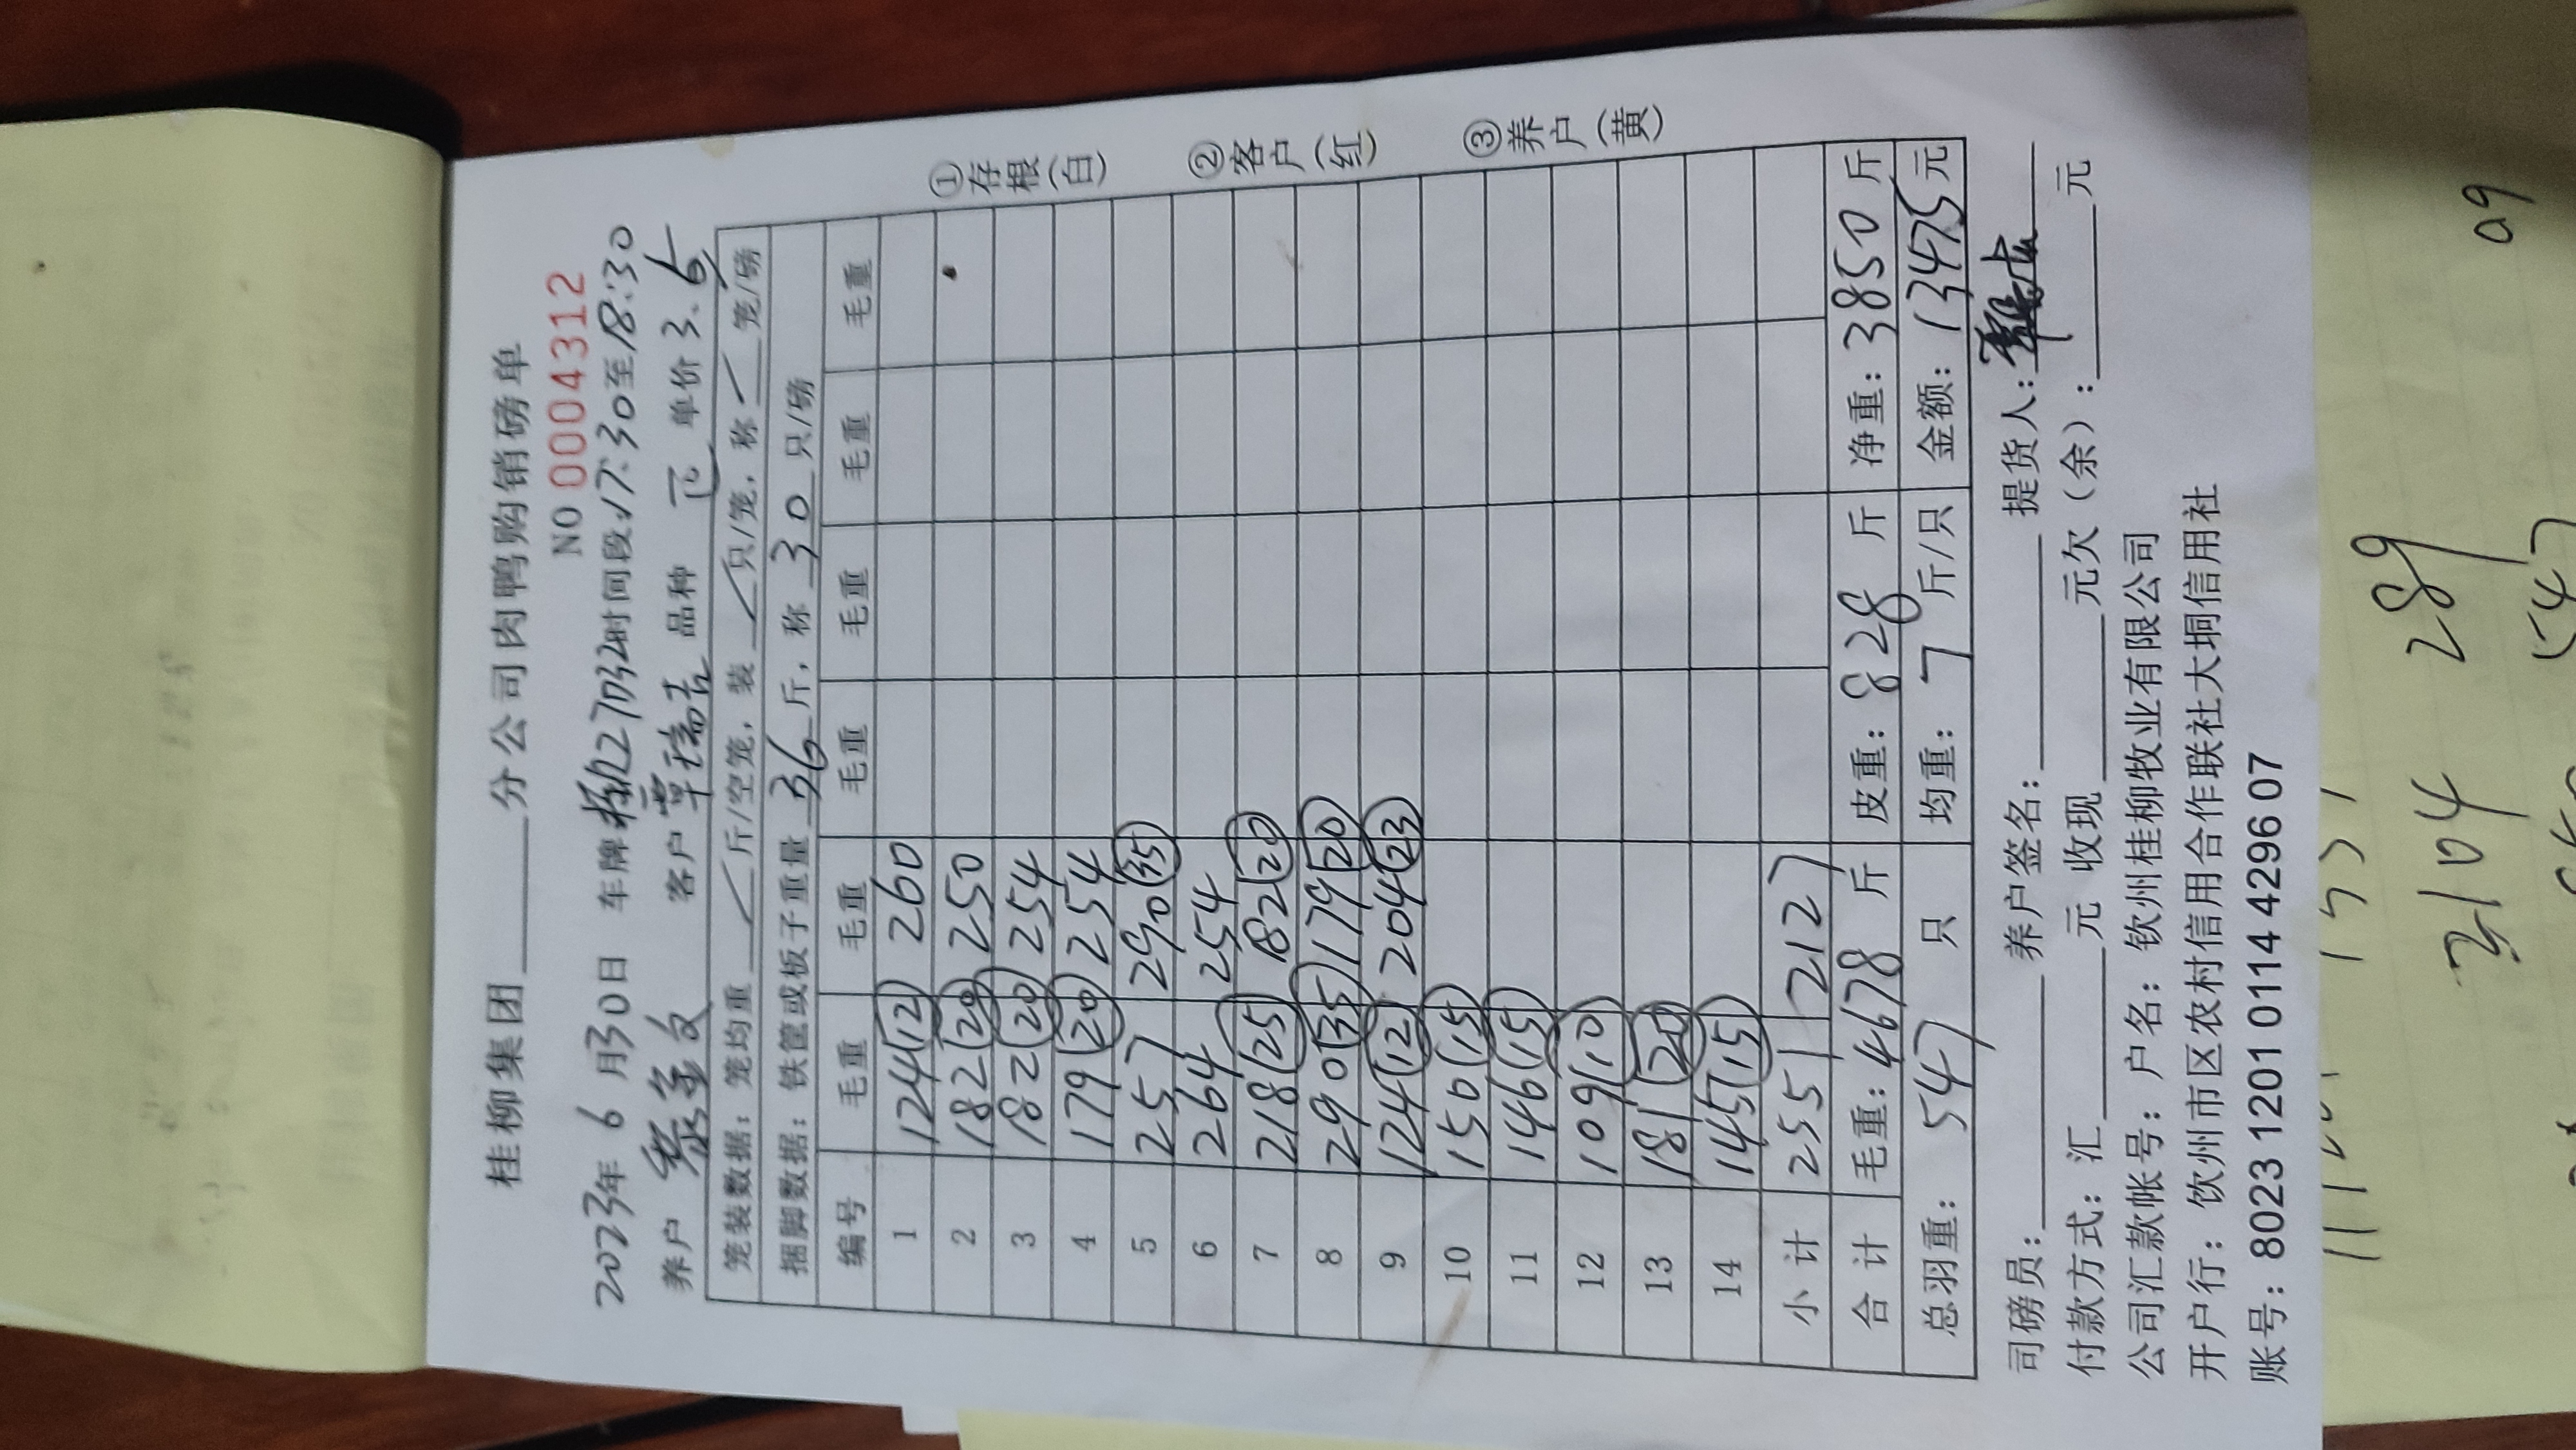 桂柳集团 分公司肉鸭购销磅单
NO 0004312
2023年 6 月30日 车牌桂N27D32时间段:17:30至18:30
养户 客户 覃瑞吉 品种 飞 单价 3.5
笼装数据：笼均重 斤/空笼，装 只/笼，称 笼/磅
捆脚数据：铁筐或板子重量 36 斤，称 30 只/磅
编号 毛重 毛重 毛重 毛重 毛重 毛重
1 124(12) 260
2 182(20) 250
3 182(20) 254
4 179(20) 254
5 257 290(35)
6 264 254
7 218(25) 182(20)
8 290(35) 179(20)
9 124(12) 204(23)
10 150(15)
11 146(15)
12 109(10)
13 181(20)
14 145(15)
小计 2551 2127
合计 毛重：4678 斤 皮重：828 斤 净重：3850 斤
总羽重：547 只 均重：7 斤/只 金额：13475元
司磅员： 养户签名： 提货人：
付款方式：汇 元 收现 元欠（余）： 元
公司汇款帐号：户名：钦州桂柳牧业有限公司
开户行：钦州市区农村信用合作联社大垌信用社
账号：8023 1201 0114 4296 07
①存根（白） ②客户（红） ③养户（黄）
3104 289
547
09